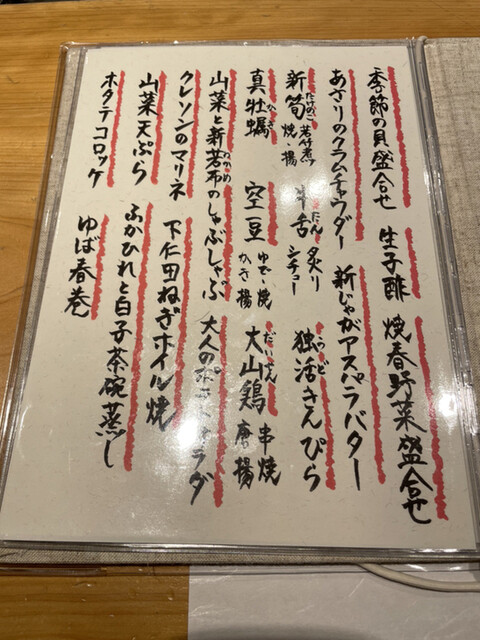 季節の貝盛合せ 生子酢 焼春野菜盛合せ
あさりのクラムチャウダー 新じゃがアスパラバター
新筍 たけのこ 若竹煮 焼・揚 牛舌 たん 炙り シチュー 独活きんぴら うど
真牡蠣 かき 空豆 ゆで・焼 かき揚 大山鶏 だいせん 串焼 唐揚
山菜と新若布のしゃぶしゃぶ わかめ 大人のポテトサラダ
クレソンのマリネ 下仁田ねぎホイル焼
山菜天ぷら ふかひれと白子茶碗蒸し
ホタテコロッケ ゆば春巻